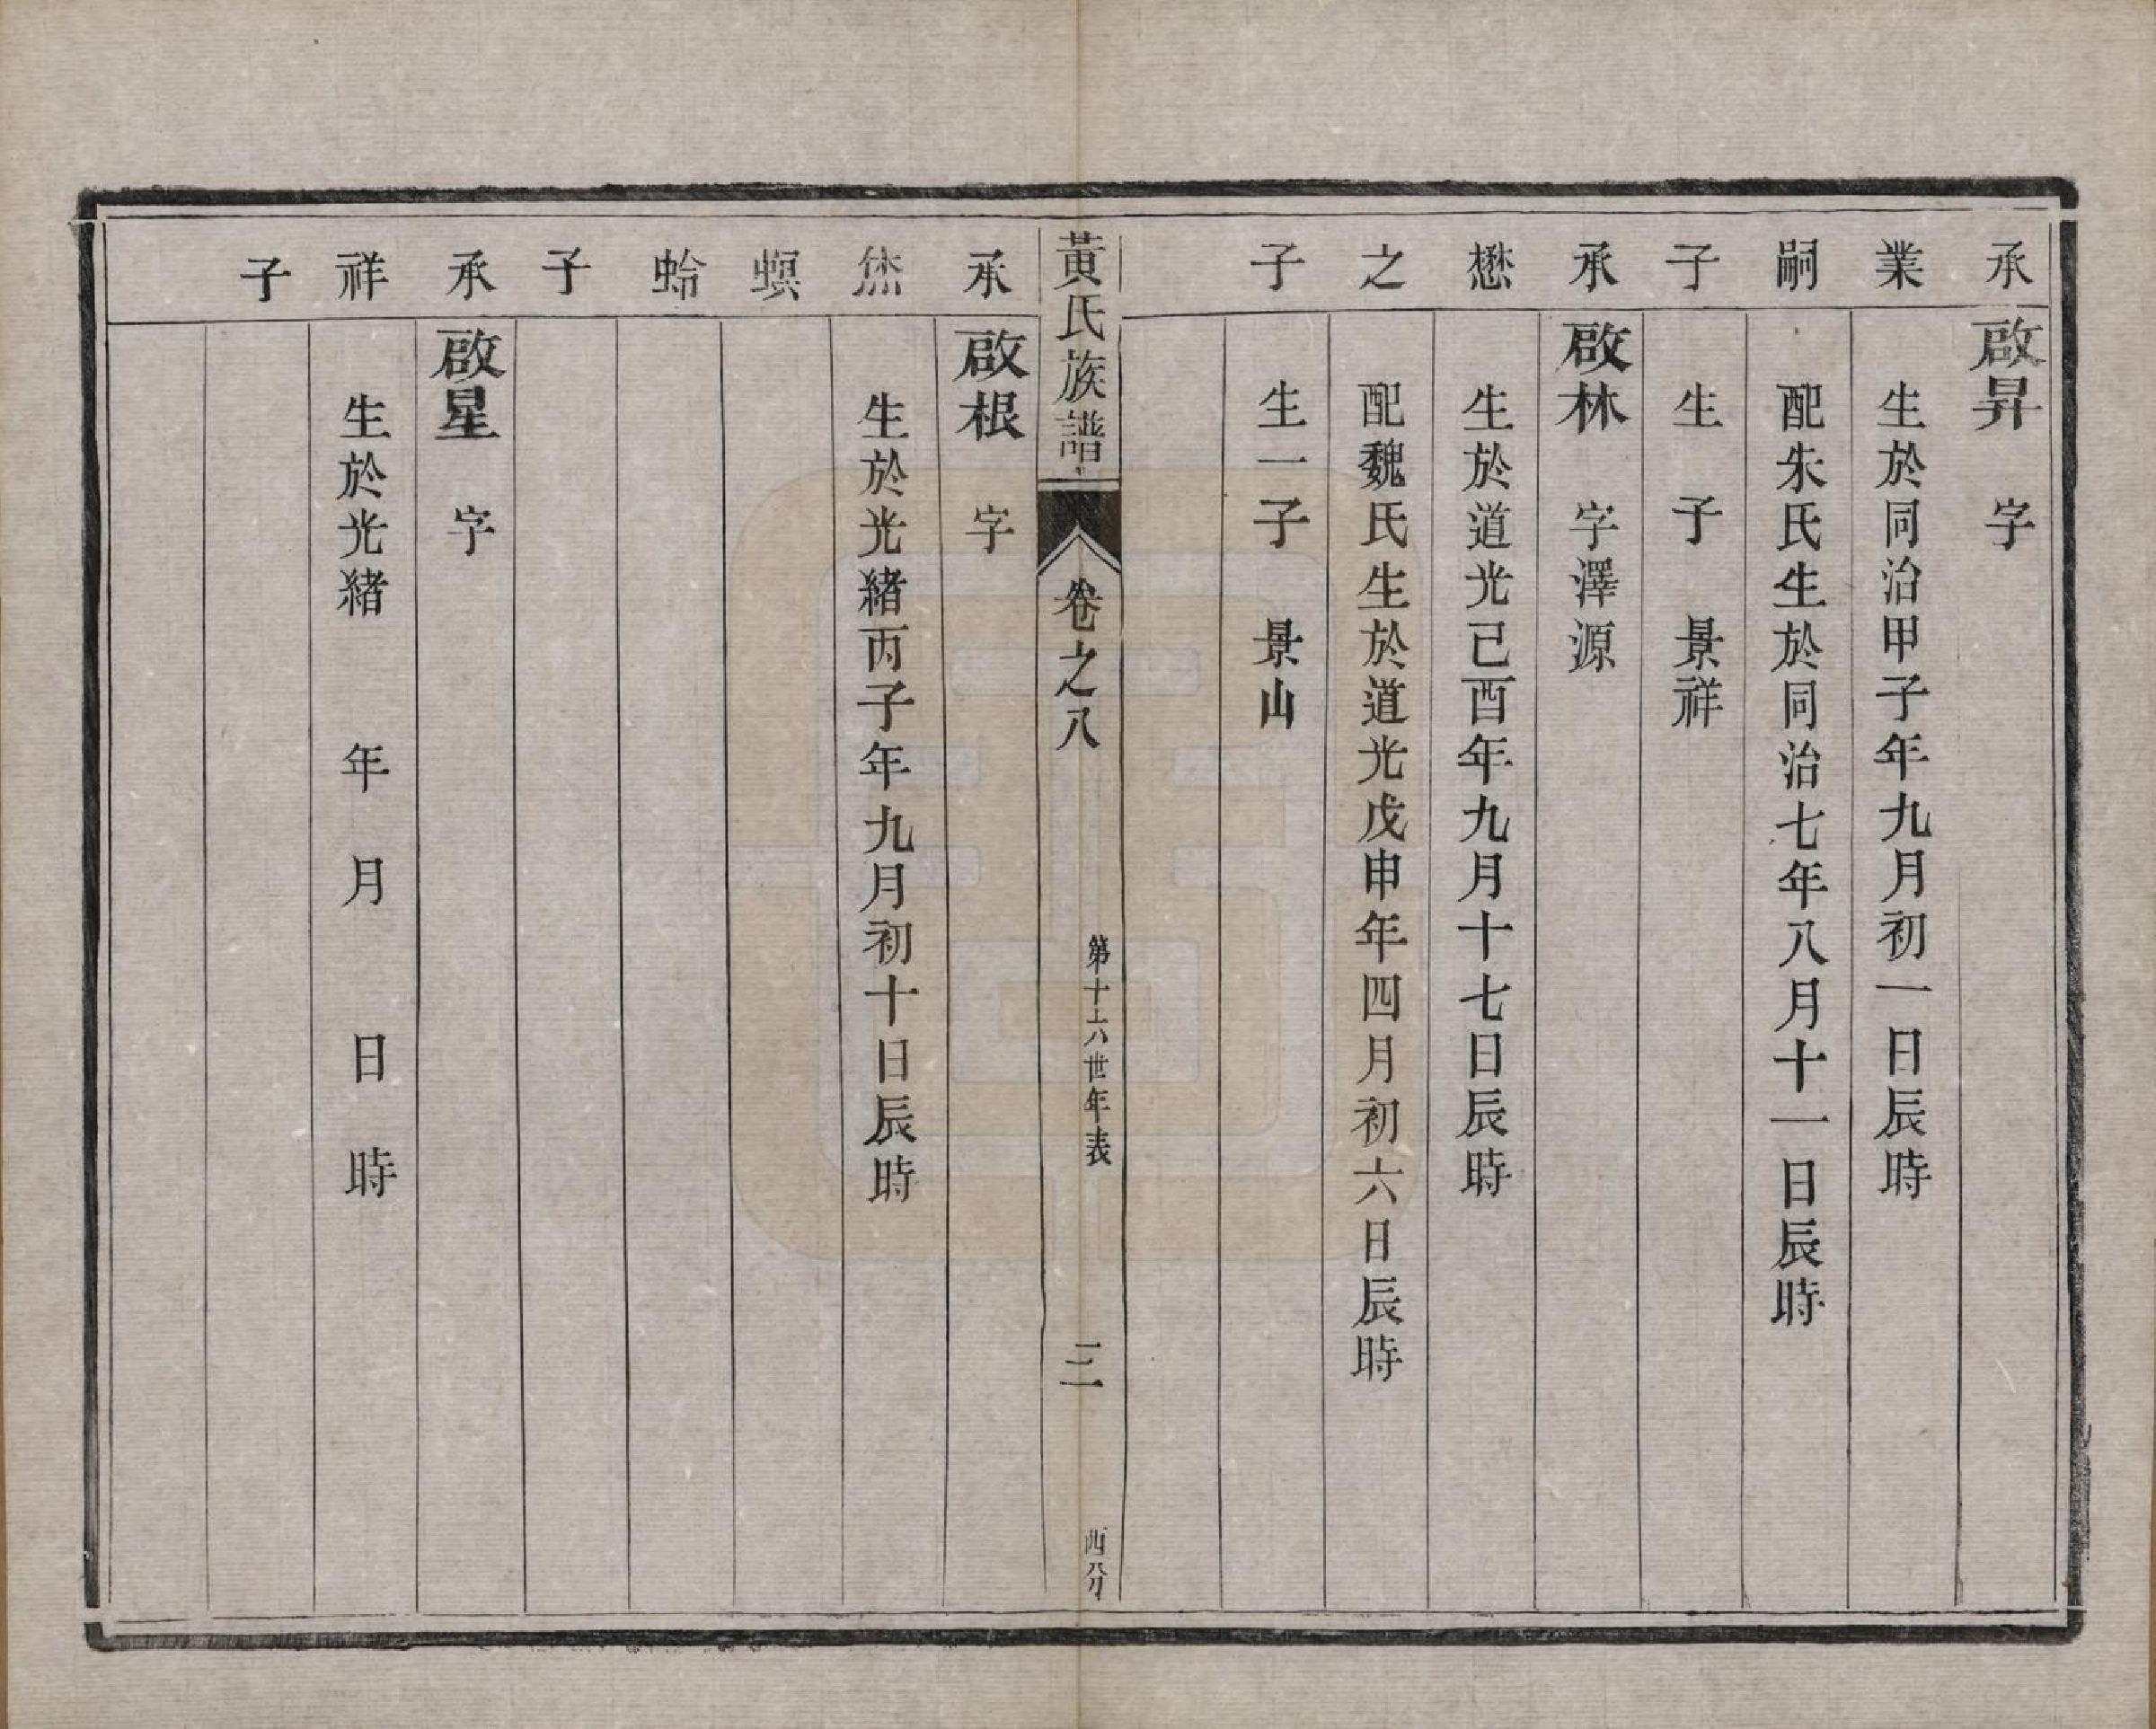 承業嗣子
啟昇　字
生於同治甲子年九月初一日辰時
配朱氏生於同治七年八月十一日辰時
生　子　景祥
承懋之子
啟林　字澤源
生於道光己酉年九月十七日辰時
配魏氏生於道光戊申年四月初六日辰時
生一子　景山
黃氏族譜
卷之八
第十六世年表
三
西分
承烋螟蛉子
啟根　字
生於光緒丙子年九月初十日辰時
承祥子
啟星　字
生於光緒　年　月　日　時